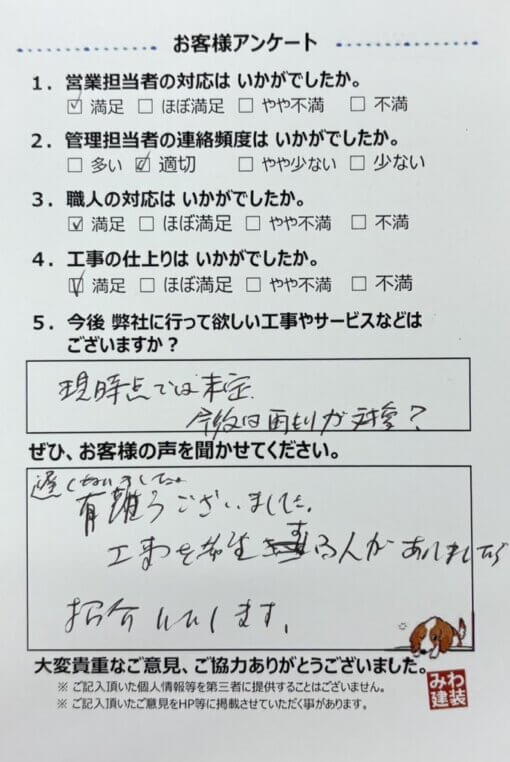 お客様アンケート
1．営業担当者の対応は いかがでしたか。
☑ 満足 □ ほぼ満足 □ やや不満 □ 不満
2．管理担当者の連絡頻度は いかがでしたか。
□ 多い ☑ 適切 □ やや少ない □ 少ない
3．職人の対応は いかがでしたか。
☑ 満足 □ ほぼ満足 □ やや不満 □ 不満
4．工事の仕上りは いかがでしたか。
☑ 満足 □ ほぼ満足 □ やや不満 □ 不満
5．今後 弊社に行って欲しい工事やサービスなどは
ございますか？
現時点では未定
今後は雨もりが対象？
ぜひ、お客様の声を聞かせてください。
遅くなりました。
有難うございました。
工事を希望する人がありましたら
紹介いたします。
大変貴重なご意見、ご協力ありがとうございました。
※ ご記入頂いた個人情報等を第三者に提供することはございません。
※ ご記入頂いたご意見をHP等に掲載させていただく事があります。
みわ
建装